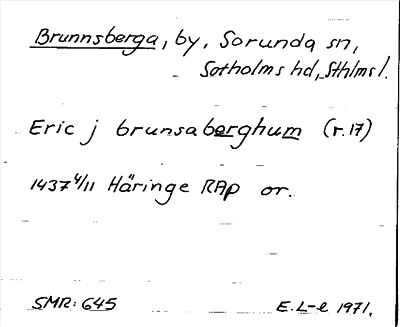 Brunnsberga, by, Sorunda sn,
Sotholms hd, Sthlms l.
Eric j brunsaberghum (r. 17)
1437 4/11 Häringe RAp or.
SMR: 645 E. L-e 1971.